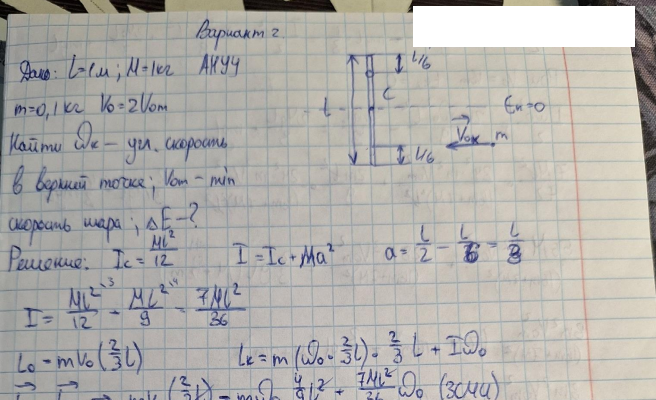 Вариант 2
Дано: L=1м; M=1кг АНУЧ
m=0,1 кг V₀=2V₀m
Найти ωк – угл. скорость
в верхней точке; V₀m – min
скорость шара; ΔE – ?
Решение: Ic = ML²/12 I = Ic + Ma² a = L/2 - L/6 = L/3
I = ML²/12 + ML²/9 = 7ML²/36
L₀ = mV₀(2/3 L) Lк = m(ω₀ · 2/3 L) · 2/3 L + Iω₀
(2/3 L) = mω₀ 4/9 L² + 7ML²/36 ω₀ (ЗСМИ)
L/6
C
L
Eп=0
V₀ m
L/6